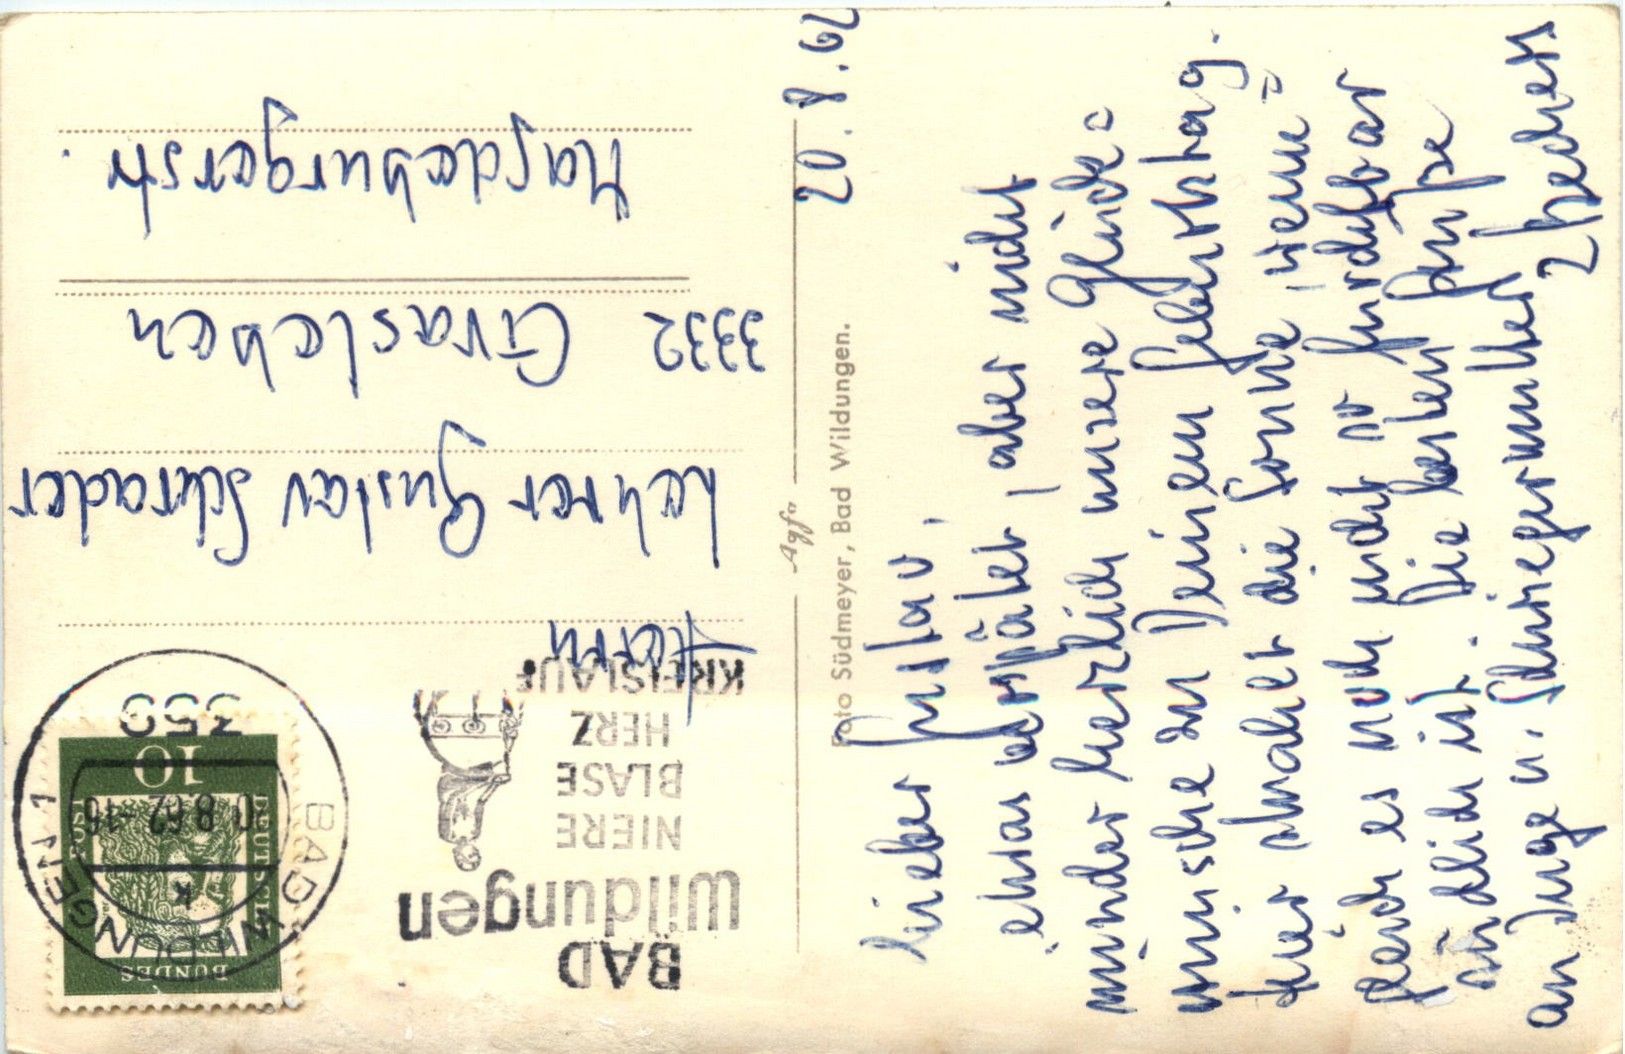 BAD
Wildungen
NIERE
BLASE
HERZ
KREISLAUF
BAD WILDUNGEN 1
8.62 -16
k
359
DEUTSCHE
BUNDES
POST
10
Herrn
Lehrer Gustav Schrader
3332 Grasleben
Magdeburgerstr.
Agfa
Foto Südmeyer, Bad Wildungen.
20.8.62
Lieber Gustav,
etwas verspätet, aber nicht
minder herzlich unsere Glück=
wünsche zu Deinem Geburtstag.
Hier die Sonne, wenn=
gleich es noch nicht so furchtbar
südlich ist. Die besten Grüße
an Inge u. Schwiegermutter